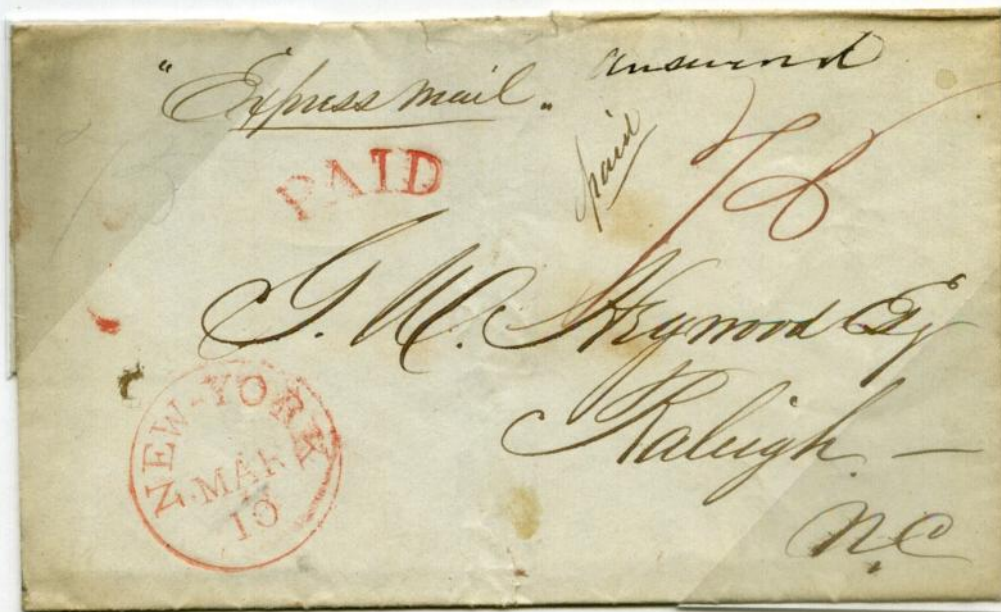 "Express mail"
answered
PAID
paid
G. W. Haywood Esq
Raleigh —
N.C
NEW-YORK
MAR